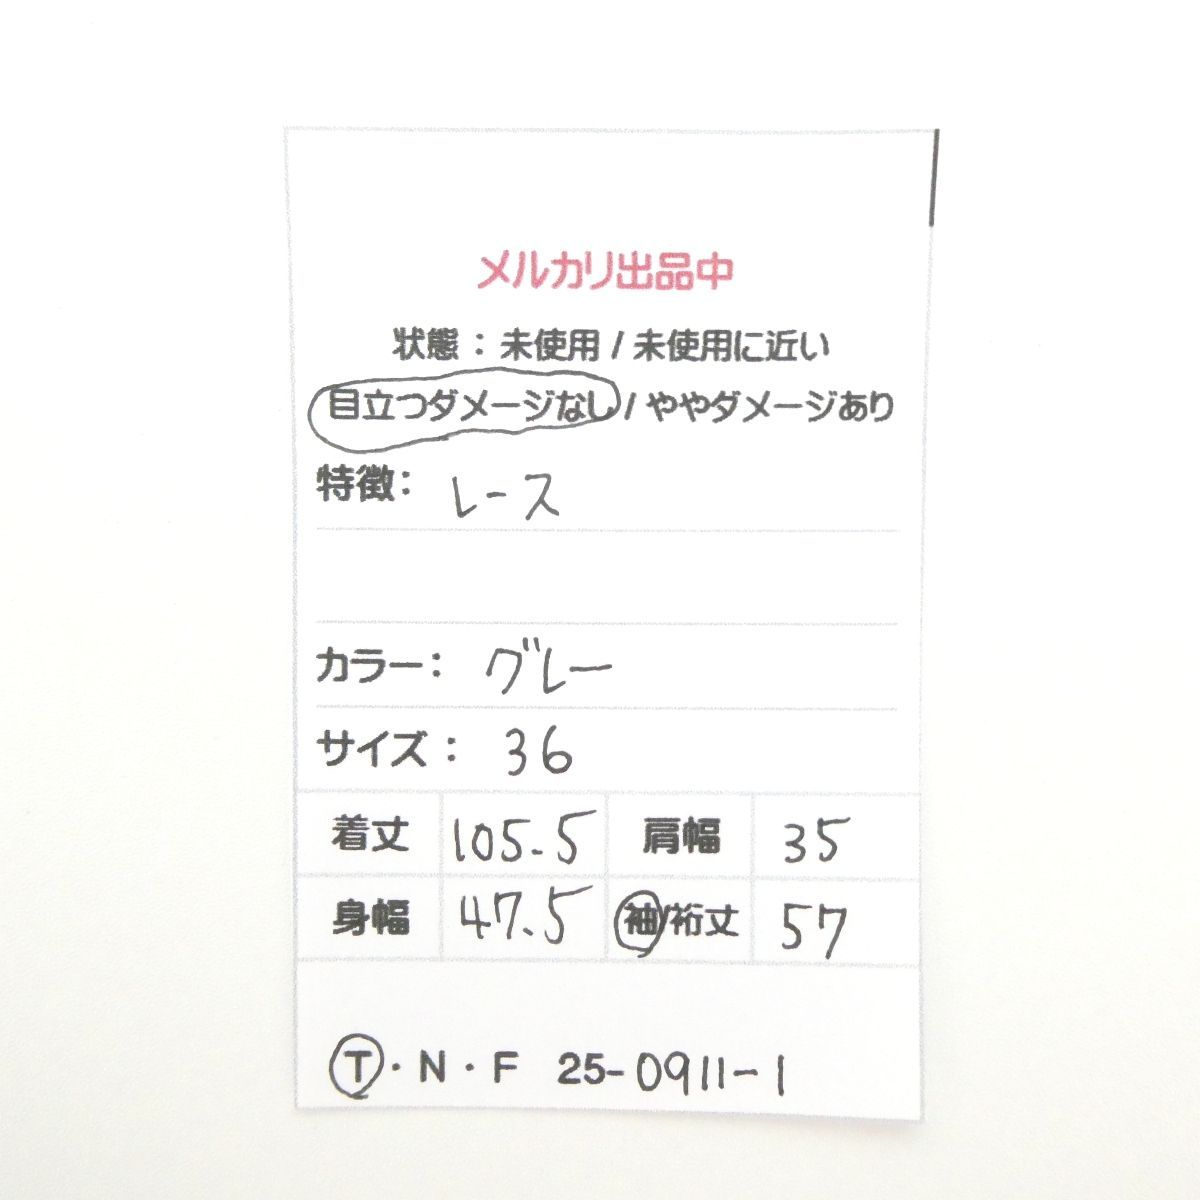 メルカリ出品中
状態：未使用/未使用に近い
目立つダメージなし/ややダメージあり
特徴: レース
カラー： グレー
サイズ： 36
着丈 105.5 肩幅 35
身幅 47.5 袖/裄丈 57
T・N・F 25-0911-1